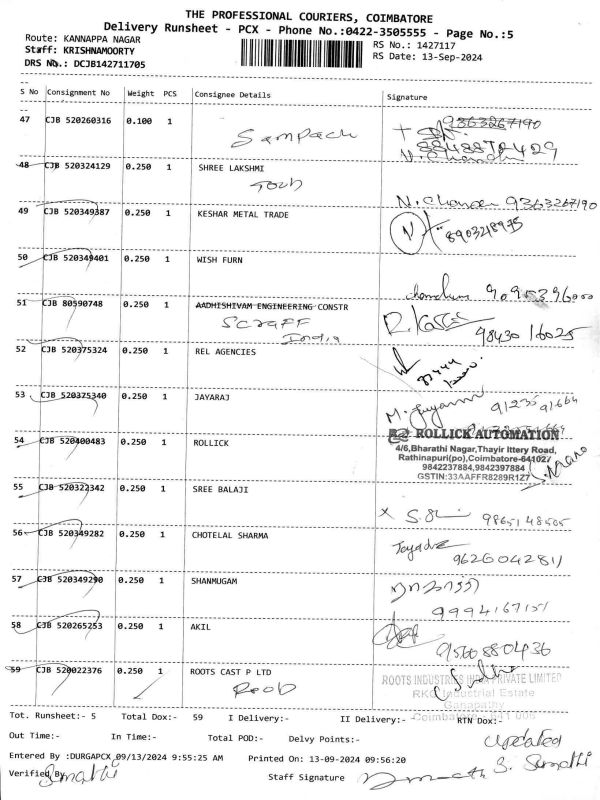 THE PROFESSIONAL COURIERS, COIMBATORE
Delivery Runsheet - PCX - Phone No.:0422-3505555 - Page No.:5
Route: KANNAPPA NAGAR
RS No.: 1427117
Staff: KRISHNAMOORTY
RS Date: 13-Sep-2024
DRS No.: DCJB142711705
S No Consignment No Weight PCS Consignee Details Signature
47 CJB 520260316 0.100 1 9363267190
Sampach
8848878429
48 CJB 520324129 0.250 1 SHREE LAKSHMI
N. Chandru 9363267190
49 CJB 520349387 0.250 1 KESHAR METAL TRADE
8903218975
50 CJB 520349401 0.250 1 WISH FURN
9095396000
51 CJB 80590748 0.250 1 AADHISHIVAM ENGINEERING CONSTR
SCRAFF India
98430 16025
52 CJB 520375324 0.250 1 REL AGENCIES
53 CJB 520375340 0.250 1 JAYARAJ
54 CJB 520400483 0.250 1 ROLLICK
ROLLICK AUTOMATION
4/6,Bharathi Nagar,Thayir Ittery Road,
Rathinapuri(po),Coimbatore-641027
9842237884,9842397884
GSTIN:33AAFFR8289R1Z7
55 CJB 520322342 0.250 1 SREE BALAJI
9865148505
56 CJB 520349282 0.250 1 CHOTELAL SHARMA
9626042811
57 CJB 520349290 0.250 1 SHANMUGAM
9994167151
58 CJB 520265253 0.250 1 AKIL
9566880436
59 CJB 520022376 0.250 1 ROOTS CAST P LTD
ROOTS INDUSTRIES INDIA PRIVATE LIMITED
RKG Industrial Estate
Ganapathy
Coimbatore - 641 006
Tot. Runsheet:- 5 Total Dox:- 59 I Delivery:- II Delivery:- RTN Dox:-
Out Time:- In Time:- Total POD:- Delvy Points:-
Updated
Entered By :DURGAPCX 09/13/2024 9:55:25 AM Printed On: 13-09-2024 09:56:20
S. Sumathi
Verified By Sumathi Staff Signature